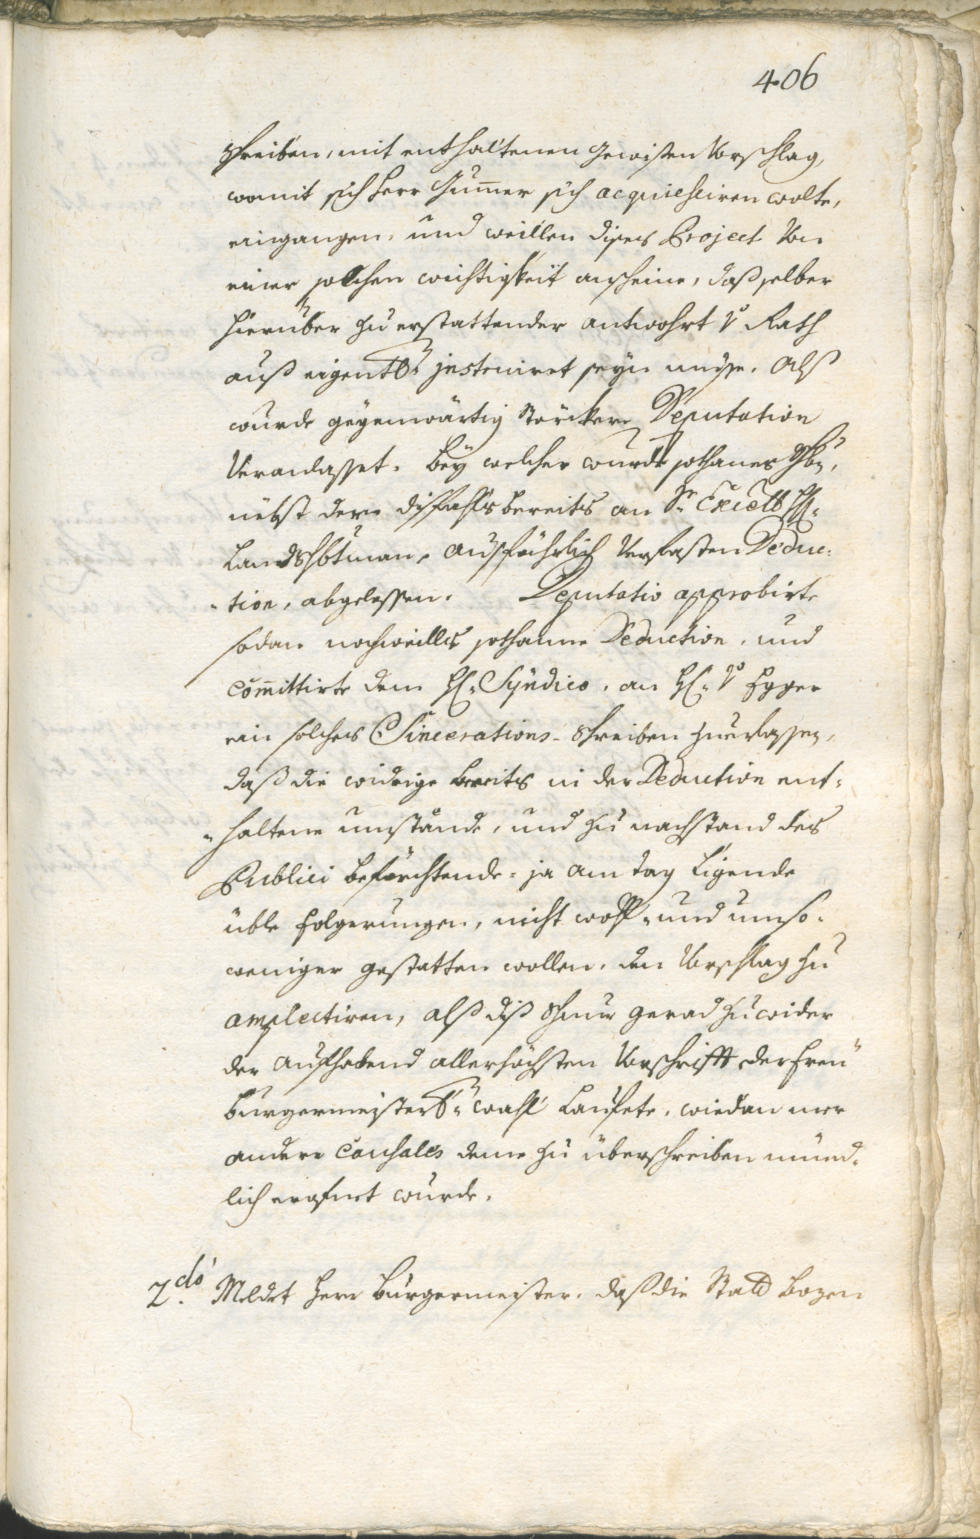 406
schreiben, mit enthaltenen gewissen Vorschlag,
womit sich herr Gumer sich acquiesciren wolte,
eingangen, und weillen dises Project von
einer solchen wichtigkeit anscheine, daß selber
hierüber zu erstattender antwohrt V. Rath
auß eigent. justeniret seyn müsse. Alß
wurde gegenwärtig störckere Deputation
Veranlasset. bey welcher wurde sothanes Schr.,
nebst dero dißfahls bereits an Sr. Excell. H.
Landshbtman, ausführlich Verfasten Deduc:
-tion, abgelessen. Deputatio approbirte
sodan nochweills sothanne Deduction, und
committirte dem H. Syndico, an H. V. Egger
ein solches Sincerations-schreiben zuerlassen,
daß die widrige bereits in der Deduction ent-
-haltene umstände, und zu nachstand des
Publici befürchtende- ja am tag ligende
üble folgerungen, nicht wohl- und umso-
weniger gestatten wollen, den Vorschlag zu
amplectiren, alß diß schnur gerad zuwider
der aufhabend allerhöchsten Vorschrifft der freü
burgermeister wahl lauffete, wie dan mer
andere Consales deme zu überschreiben münd-
lich erofnet wurde.
2.do Meldet herr burgermeister, daß die Statt bozen